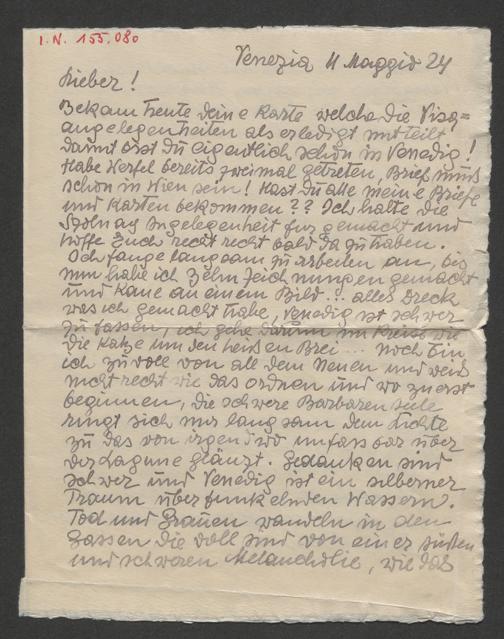 I.N. 155.080
Venezia 11 Maggio 24
Lieber!
Bekam heute deine Karte welche die Visa=
angelegenheiten als erledigt mitteilt
damit bist du eigentlich schon in Venedig!
Habe Werfel bereits zweimal gebeten, Brief muß
schon in Wien sein! Hast du alle meine Briefe
und Karten bekommen?? Ich halte die
Angelegenheit für gemacht und
hoffe Euch recht recht bald da zu haben.
Ich fange langsam zu arbeiten an, bis
nun habe ich zehn Zeichnungen gemacht
und kaue an einem Bild..! alles Dreck
was ich gemacht habe, Venedig ist schwer
zu fassen, ich gehe darum im Kreise wie
die Katze um den heißen Brei... noch bin
ich zu voll von all dem Neuen und weiß
nicht recht wie das ordnen und wo zuerst
beginnen, die schwere Barbarenseele
ringt sich nur langsam dem Lichte
zu das von irgendwo unfassbar über
der Lagune glänzt. Gedanken sind
schwer und Venedig ist ein silberner
Traum über funkelnden Wassern.
Tod und Grauen wandeln in den
Gassen die voll sind von einer süßen
und schweren Melancholie, wie das